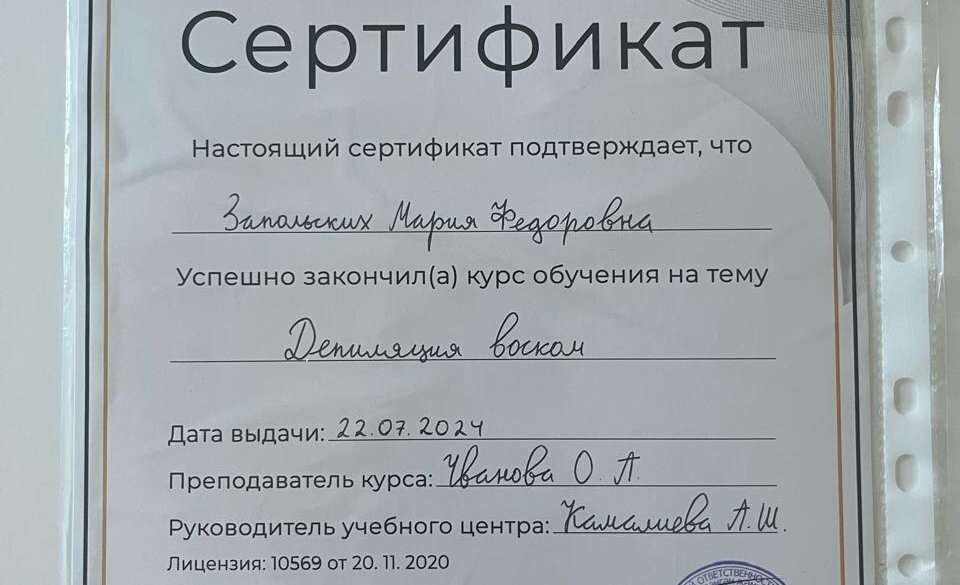 Сертификат
Настоящий сертификат подтверждает, что
Запольских Мария Федоровна
Успешно закончил(а) курс обучения на тему
Депиляция воском
Дата выдачи: 22.07.2024
Преподаватель курса: Иванова О. А.
Руководитель учебного центра: Камалиева А.Ш.
Лицензия: 10569 от 20. 11. 2020
ОТВЕТСТВЕННОС